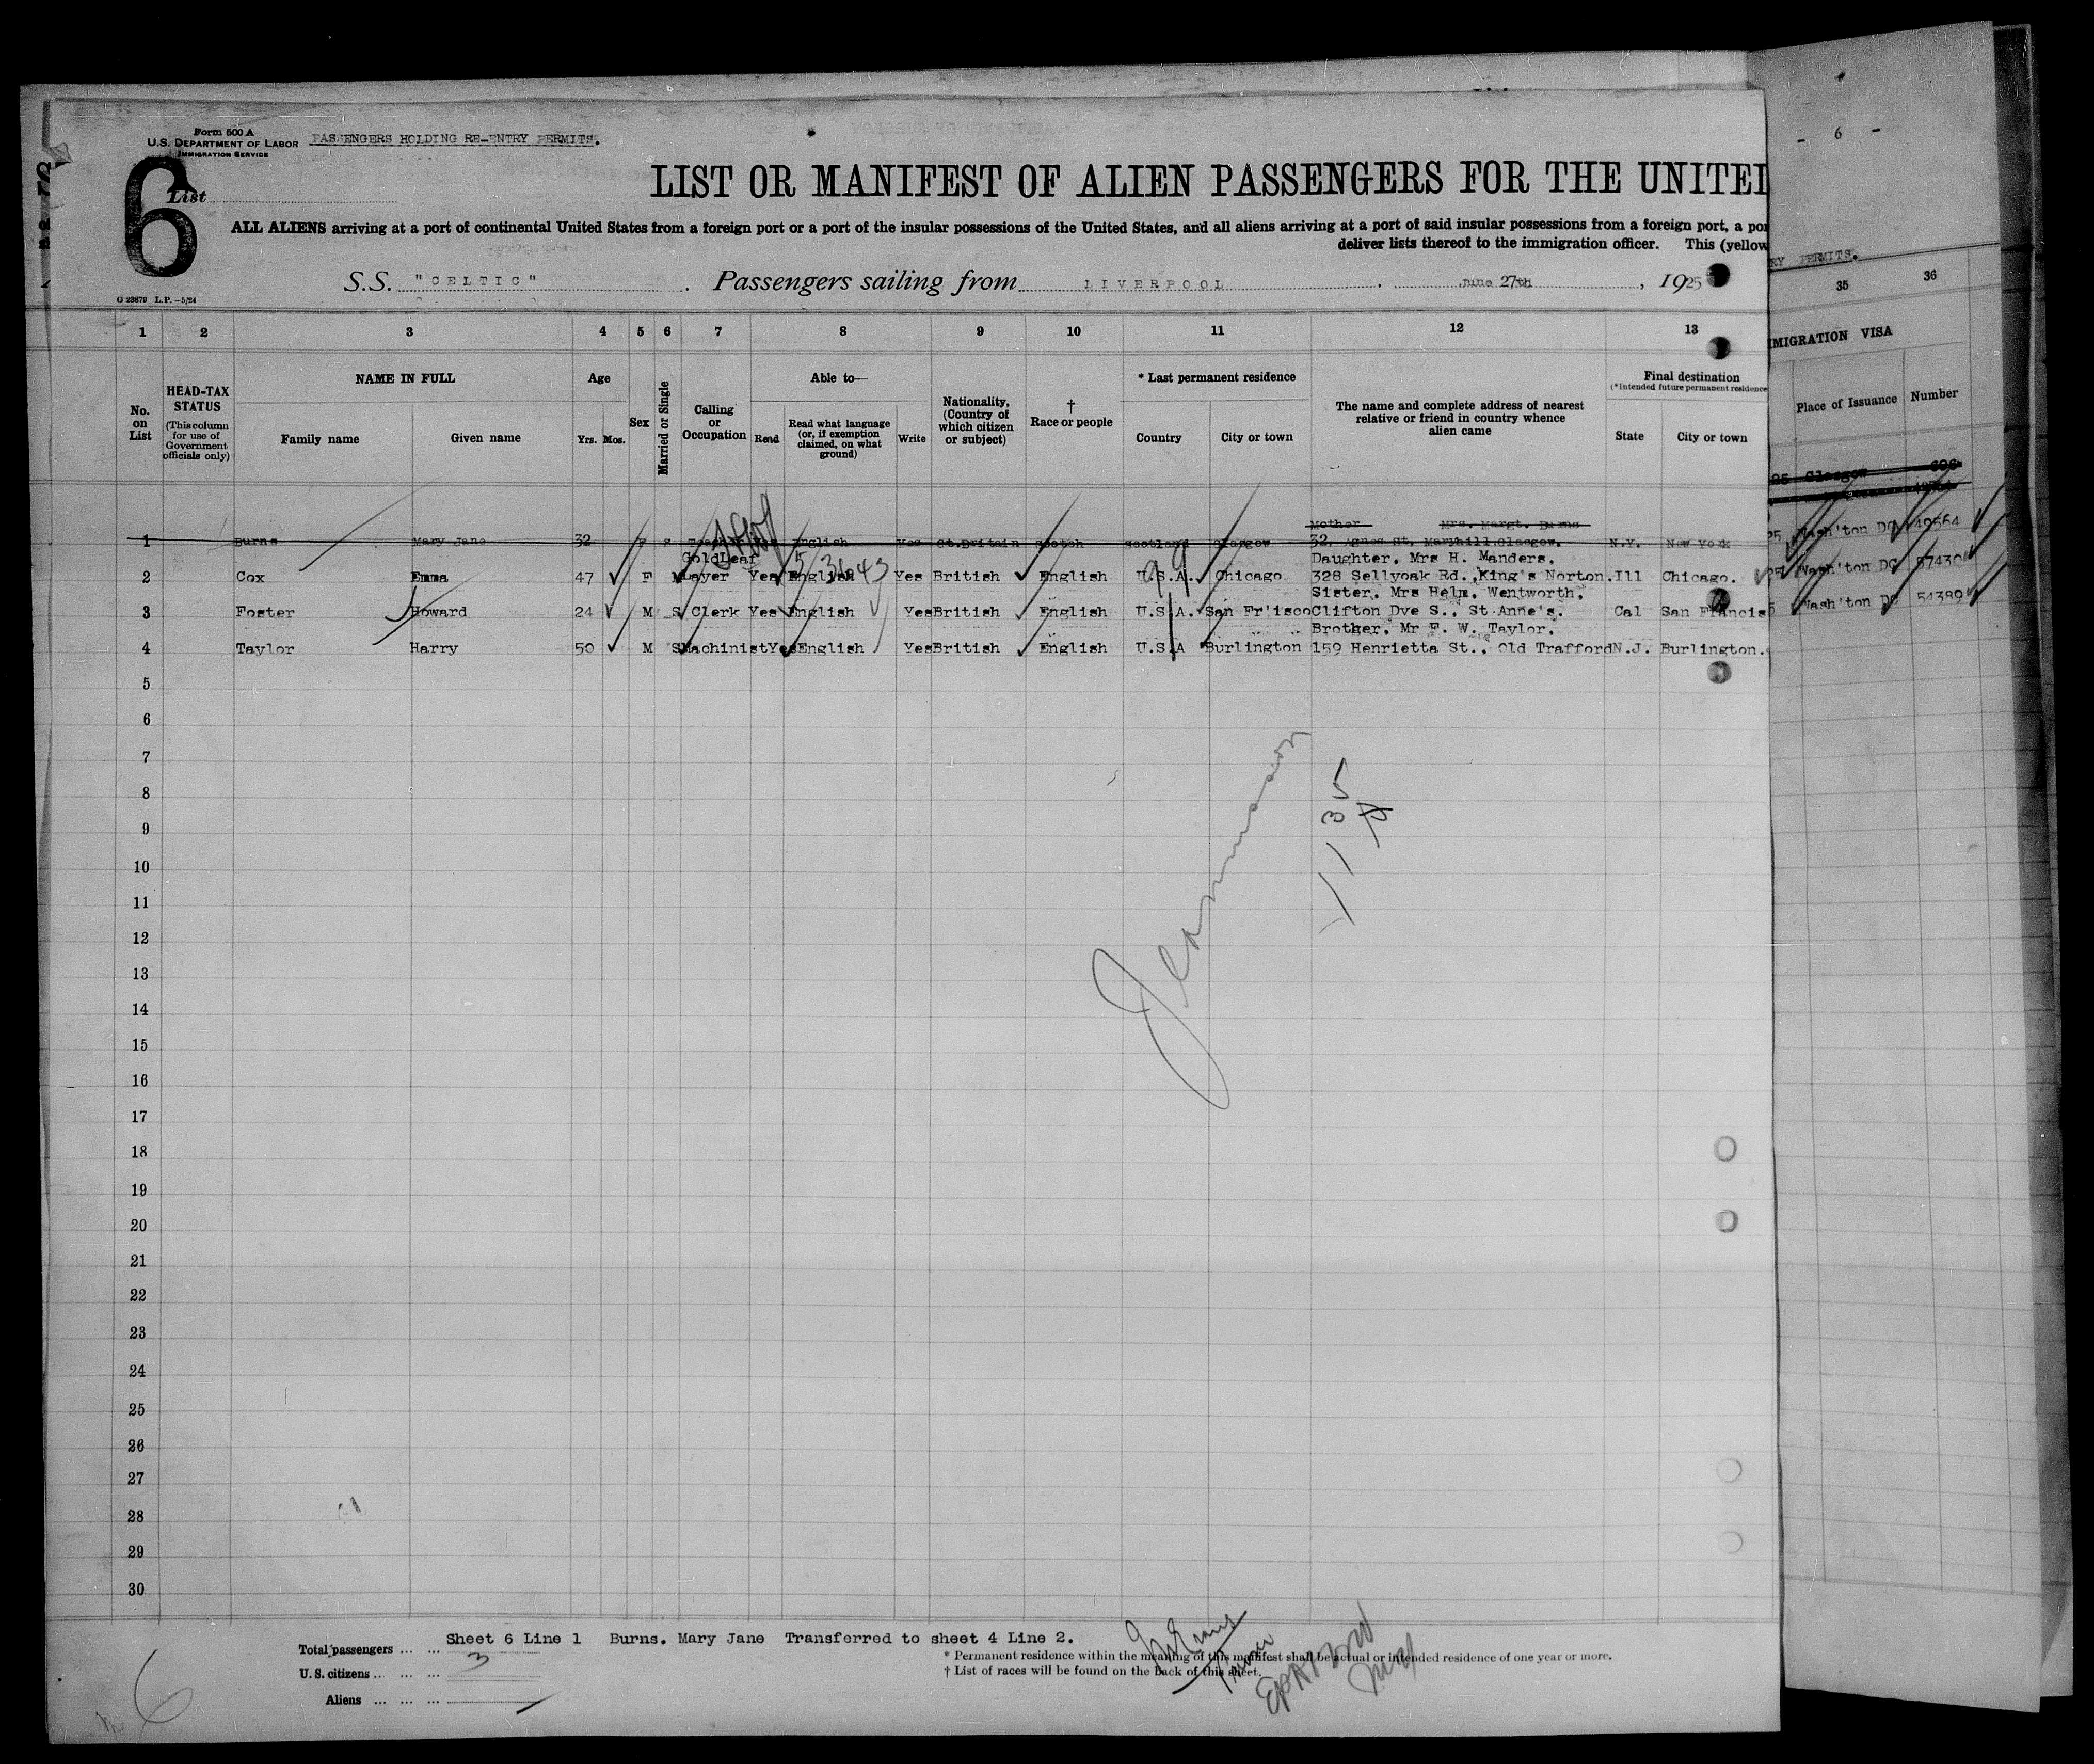 Form 500 A
U.S. DEPARTMENT OF LABOR
IMMIGRATION SERVICE
PASSENGERS HOLDING RE-ENTRY PERMITS.
6
List
LIST OR MANIFEST OF ALIEN PASSENGERS FOR THE UNITED
ALL ALIENS arriving at a port of continental United States from a foreign port or a port of the insular possessions of the United States, and all aliens arriving at a port of said insular possessions from a foreign port, a por
deliver lists thereof to the immigration officer. This (yellow
S.S. "CELTIC". Passengers sailing from LIVERPOOL. June 27th, 1925
G 23879 L.P.—5/24
1 2 3 4 5 6 7 8 9 10 11 12 13
No. on List
HEAD-TAX STATUS
(This column for use of Government officials only)
NAME IN FULL
Family name Given name
Age
Yrs. Mos.
Sex
Married or Single
Calling or Occupation
Able to—
Read
Read what language (or, if exemption claimed, on what ground)
Write
Nationality, (Country of which citizen or subject)
† Race or people
* Last permanent residence
Country City or town
The name and complete address of nearest relative or friend in country whence alien came
Final destination
(*Intended future permanent residence
State City or town
Mother Mrs. Margt. Burns
1 Burns Mary Jane 32 F S English Yes Gt.Britain Scotch Scotland Glasgow 32, Agnes St. Maryhill.Glasgow. N.Y. New York
GoldLeaf Daughter. Mrs H. Manders.
2 Cox Emma 47 F M Layer Yes English Yes British English U.S.A. Chicago 328 Sellyoak Rd.,King's Norton. Ill Chicago.
Sister. Mrs Helm. Wentworth.
3 Foster Howard 24 M S Clerk Yes English Yes British English U.S.A. San Fr'isco Clifton Dve S., St Anne's. Cal San Francis
Brother. Mr F. W. Taylor.
4 Taylor Harry 50 M S Machinist Yes English Yes British English U.S.A Burlington 159 Henrietta St., Old Trafford N.J. Burlington.
5
6
7
8
9
10
11
12
13
14
15
16
17
18
19
20
21
22
23
24
25
26
27
28
29
30
11 35
Sheet 6 Line 1 Burns. Mary Jane Transferred to sheet 4 Line 2.
Total passengers ... ...
U.S. citizens ... ... ... 3
Aliens ... ... ...
* Permanent residence within the meaning of this manifest shall be actual or intended residence of one year or more.
† List of races will be found on the back of this sheet.
6
- 6 -
RY PERMITS.
35 36
MIGRATION VISA
Place of Issuance Number
25 Glasgow 606
25 Wash'ton DC 49564
25 Wash'ton DC 57430
5 Wash'ton DC 54389